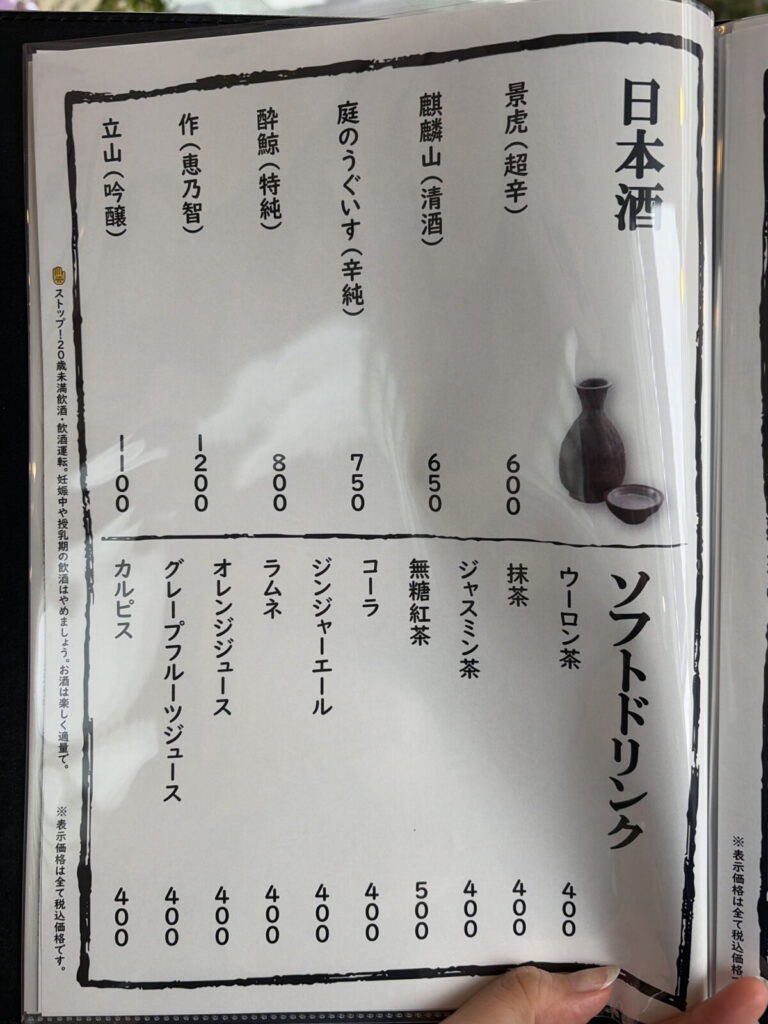 日本酒
景虎(超辛) 600
麒麟山(清酒) 650
庭のうぐいす(辛純) 750
酔鯨(特純) 800
作(恵乃智) 1200
立山(吟醸) 1100
ソフトドリンク
ウーロン茶 400
抹茶 400
ジャスミン茶 400
無糖紅茶 500
コーラ 400
ジンジャーエール 400
ラムネ 400
オレンジジュース 400
グレープフルーツジュース 400
カルピス 400
ストップ!20歳未満飲酒・飲酒運転。妊娠中や授乳期の飲酒はやめましょう。お酒は楽しく適量で。
※表示価格は全て税込価格です。
※表示価格は全て税込価格